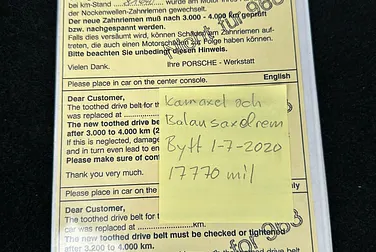 bei km-Stand
der Nockenwellen-Zahnriemen gewechselt.
Der neue Zahnriemen muß nach 3.000 - 4.000 km geprüft
bzw. nachgespannt werden.
Falls dies versäumt wird, können Schäden am Zahnriemen auf-
treten, die auch einen Motorschaden zur Folge haben können.
Bitte beachten Sie unbedingt diesen Hinweis.
Vielen Dank. Ihre PORSCHE - Werkstatt
Please place in car on the center console. English
Dear Customer,
The toothed drive belt for
was replaced at
The new toothed drive be
after 3.000 to 4.000 km (2
If this is neglected, damage
and in turn even lead to en
Please make sure of com
Thank you very much.
Kamaxel och
Balansaxelrem
Bytt 1-7-2020
17770 mil
Please place in car on the
Dear Customer,
The toothed drive belt for
car was replaced at km.
The new toothed drive belt must be checked or tightened
after 3.200 to 4.000 km.